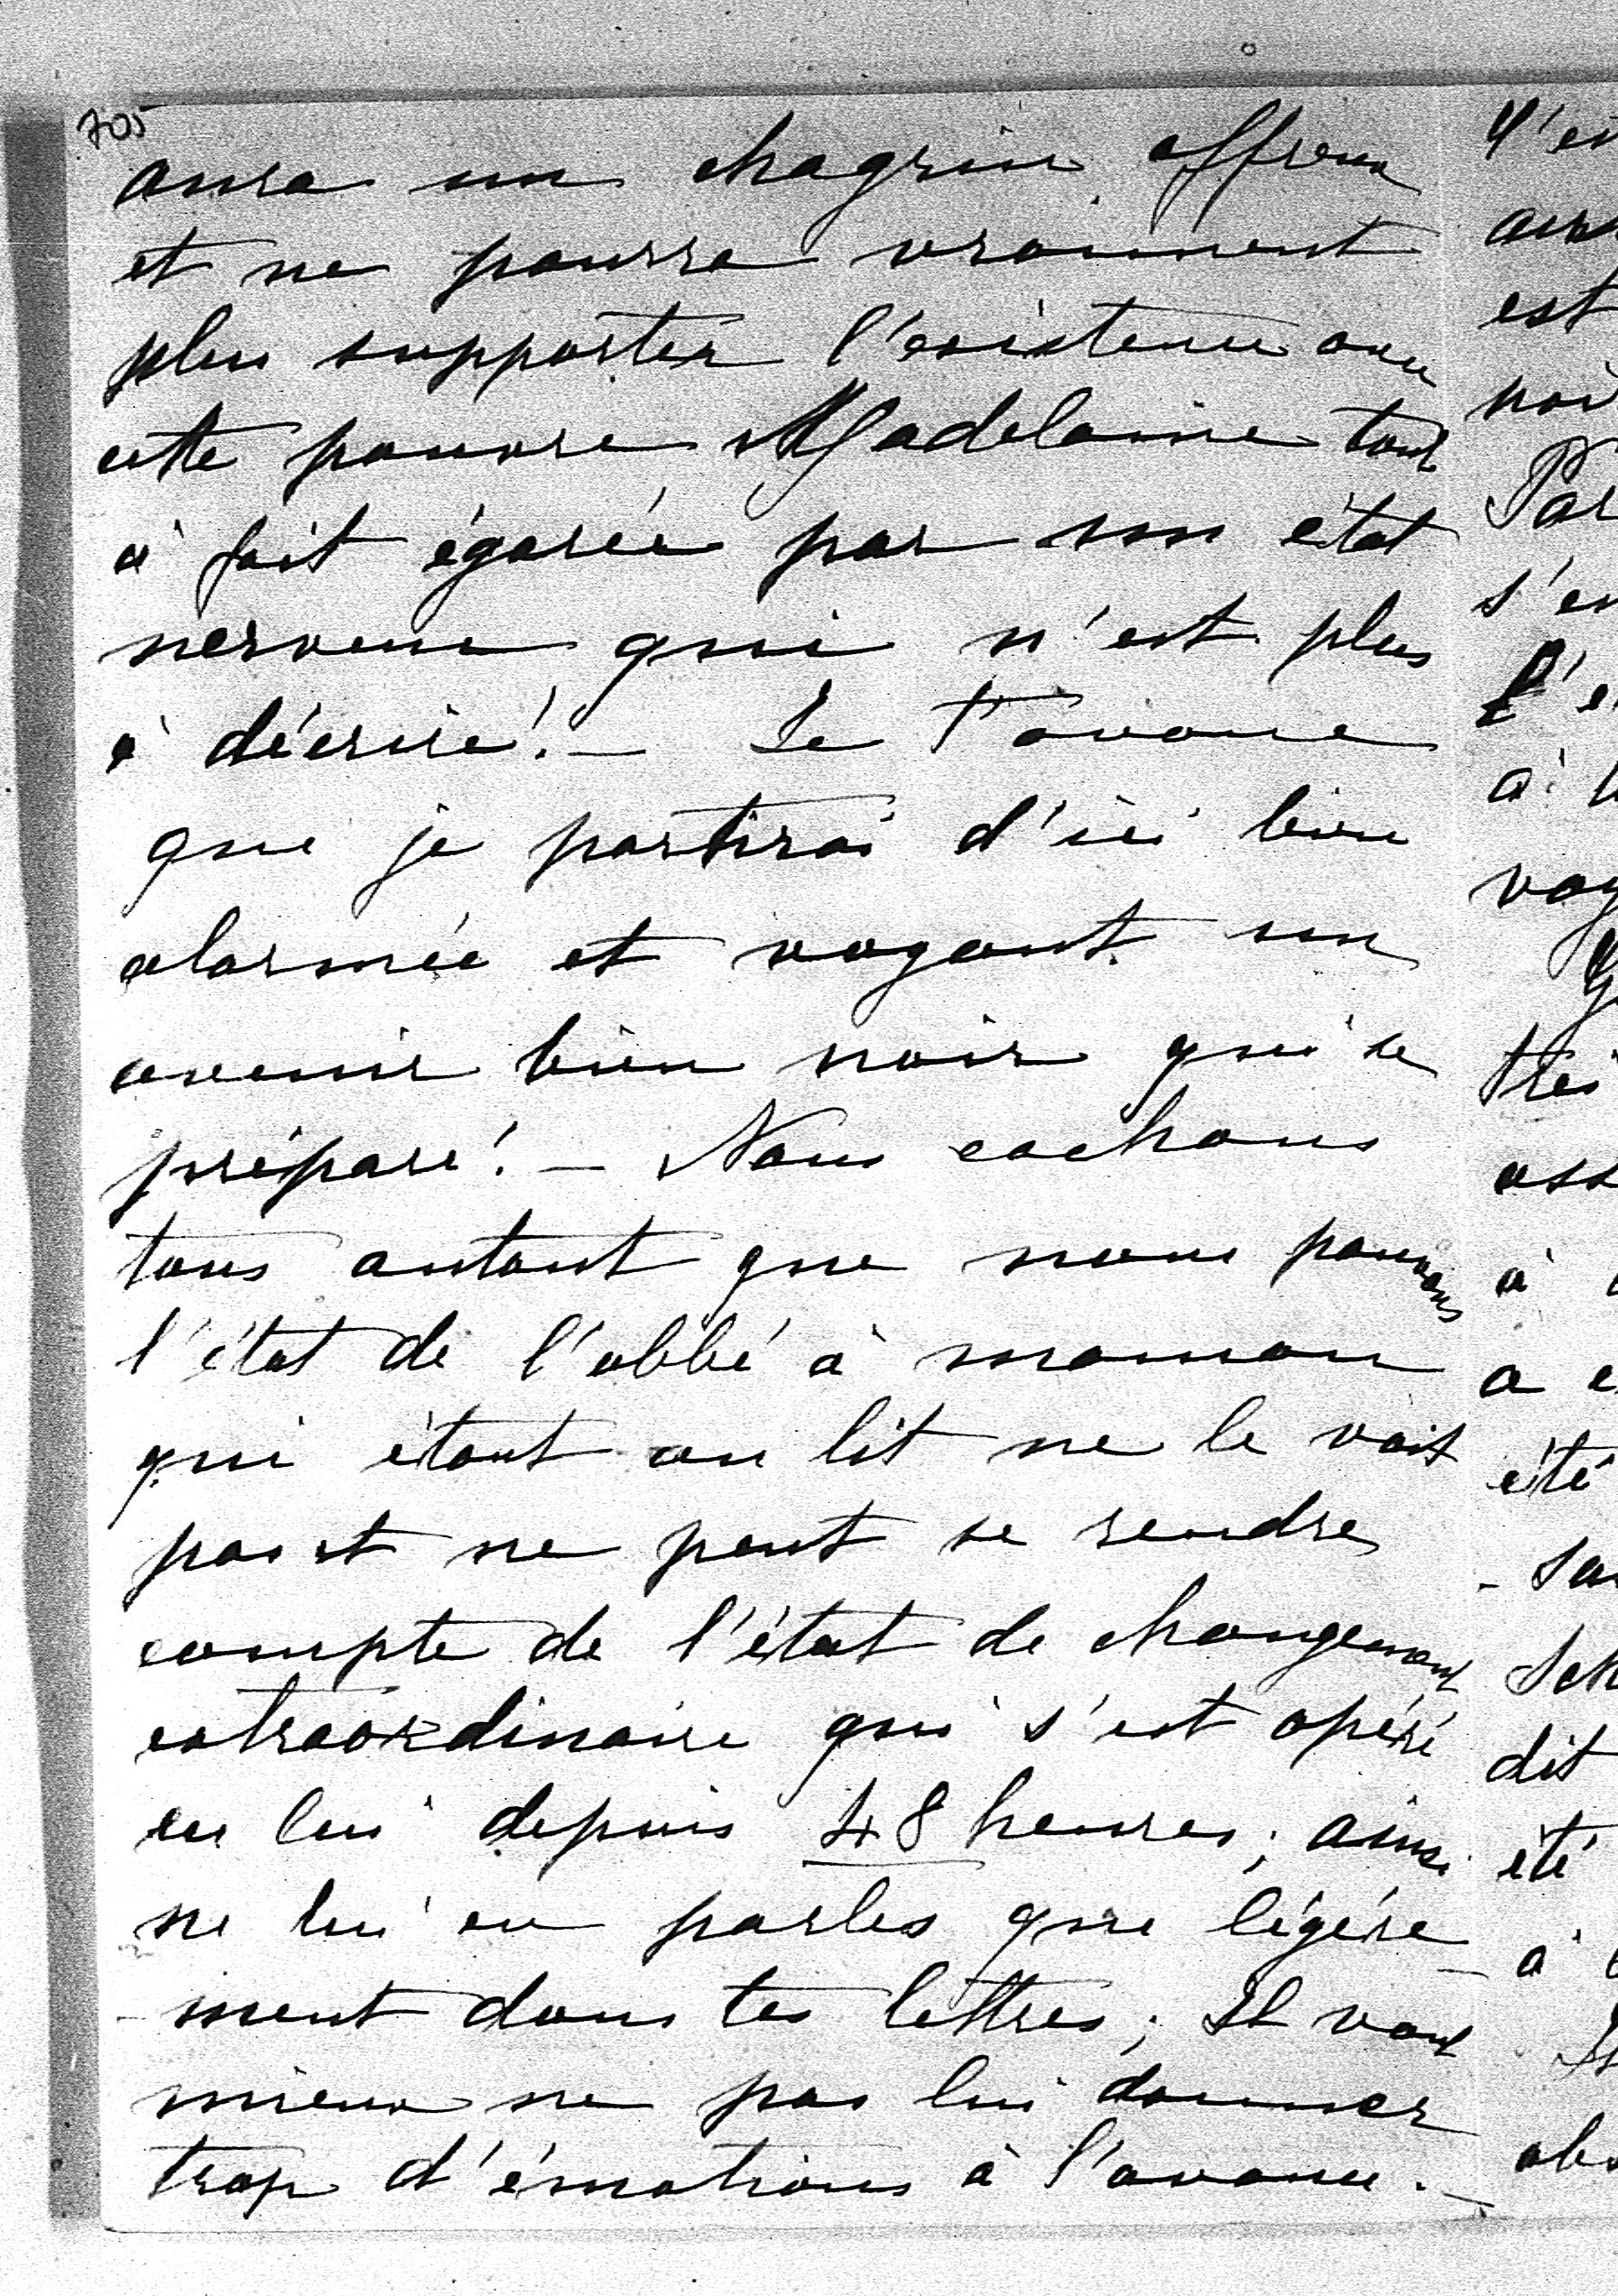 705
aura un chagrin affreux
et ne pourra vraiment
plus supporter l'existence avec
cette pauvre Madelaine tout
à fait égarée par son état
nerveux qui n'est plus
à décrire! — Je t'avoue
que je partirai d'ici bien
alarmée et voyant un
avenir bien noir qui se
prépare! — Nous cachons
tous autant que nous pouvons
l'état de l'abbé à maman
qui étant au lit ne le voit
pas et ne peut se rendre
compte de l'état de changement
extraordinaire qui s'est opéré
en lui depuis 48 heures; ainsi
ne lui en parles que légère
- ment dans tes lettres; Il vaut
mieux ne pas lui donner
trop d'émotions à l'avance. —
est
Par
à
très
à
a
été
dit
été
à